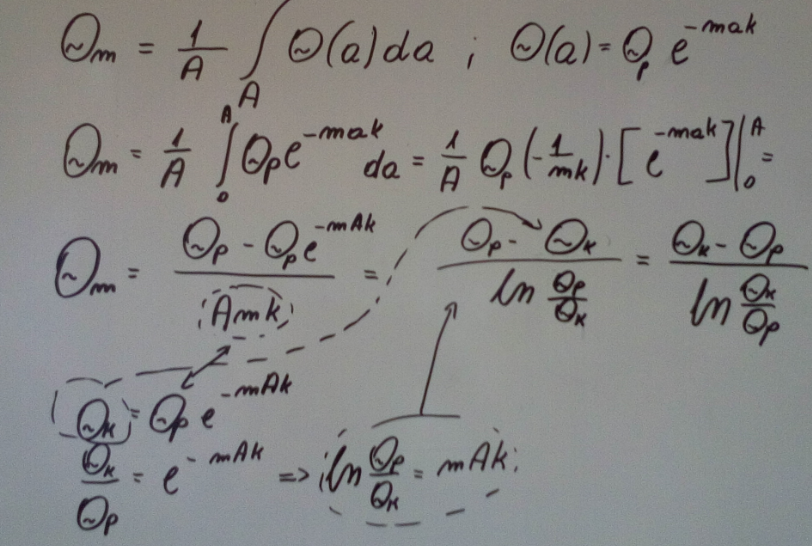 Θₘ = 1/A ∫_A Θ(a)da ; Θ(a) = Θₚ e^(-mak)
Θₘ = 1/A ∫₀^A Θₚe^(-mak) da = 1/A Θₚ (-1/mk)·[e^(-mak)]|₀^A =
Θₘ = (Θₚ - Θₚe^(-mAk))/(Amk) = (Θₚ - Θₖ)/(ln Θₚ/Θₖ) = (Θₖ - Θₚ)/(ln Θₖ/Θₚ)
Θₖ = Θₚ e^(-mAk)
Θₖ/Θₚ = e^(-mAk) => ln Θₚ/Θₖ = mAk